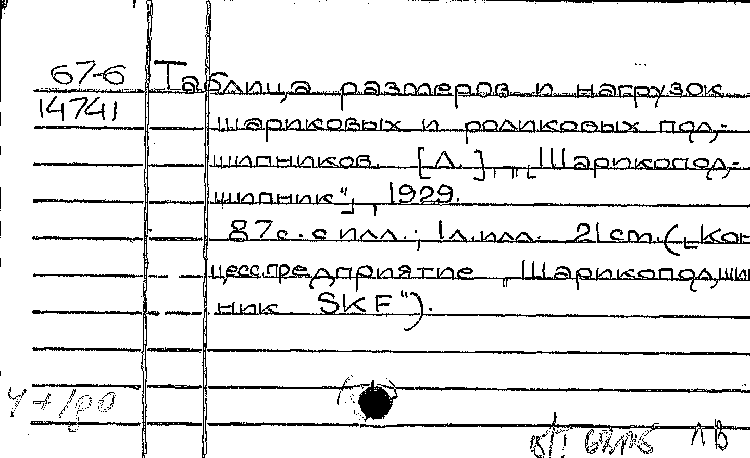 67-6 Таблица размеров и нагрузок
14741 шариковых и роликовых под-
шипников. [Л.], "Шарикопод-
шипник", 1929.
87с. с илл.; 1л.илл. 21cm. ("Кон-
цесс.предприятие "Шарикоподшип-
ник SKF").